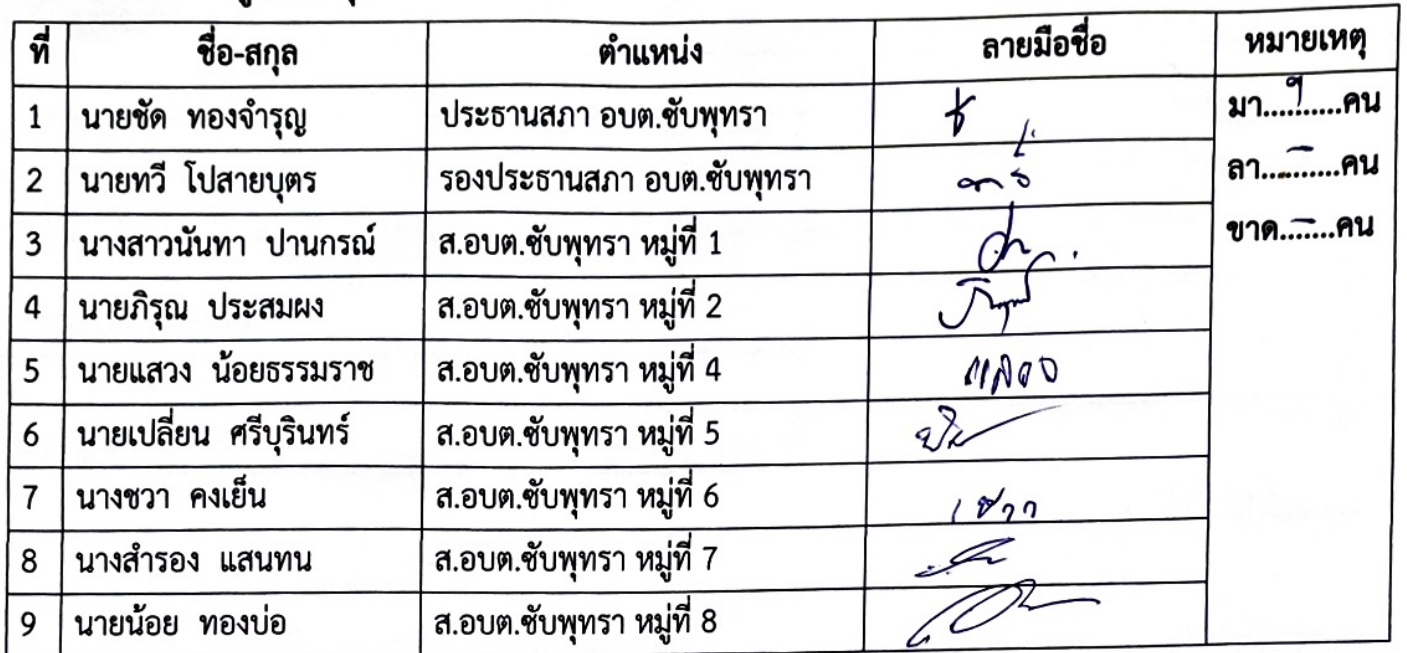 ที่ ชื่อ-สกุล ตำแหน่ง ลายมือชื่อ หมายเหตุ
1 นายชัด ทองจำรุญ ประธานสภา อบต.ซับพุทรา มา..........คน
2 นายทวี โปสายบุตร รองประธานสภา อบต.ซับพุทรา ลา....-......คน
3 นางสาวนันทา ปานกรณ์ ส.อบต.ซับพุทรา หมู่ที่ 1 ขาด...-....คน
4 นายภิรุณ ประสมผง ส.อบต.ซับพุทรา หมู่ที่ 2
5 นายแสวง น้อยธรรมราช ส.อบต.ซับพุทรา หมู่ที่ 4 แสวง
6 นายเปลี่ยน ศรีบุรินทร์ ส.อบต.ซับพุทรา หมู่ที่ 5
7 นางชวา คงเย็น ส.อบต.ซับพุทรา หมู่ที่ 6
8 นางสำรอง แสนทน ส.อบต.ซับพุทรา หมู่ที่ 7
9 นายน้อย ทองบ่อ ส.อบต.ซับพุทรา หมู่ที่ 8